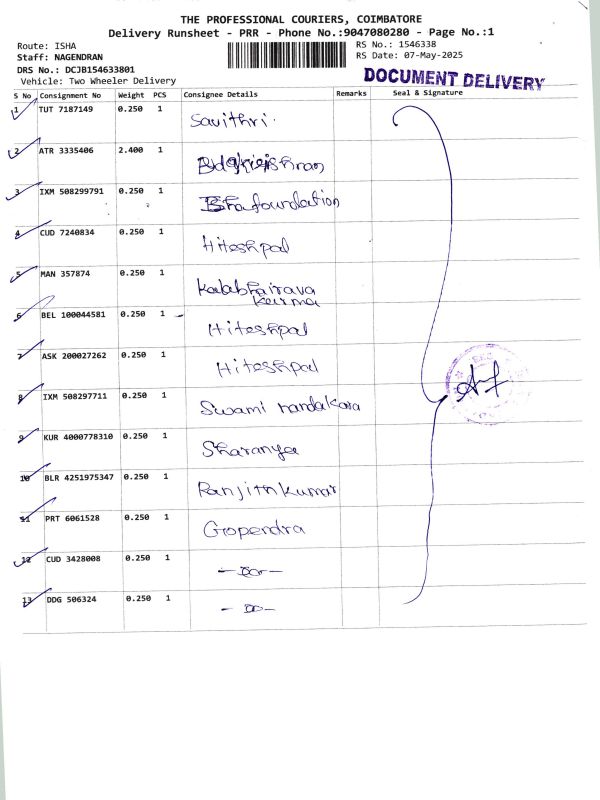 THE PROFESSIONAL COURIERS, COIMBATORE
Delivery Runsheet - PRR - Phone No.:9047080280 - Page No.:1
Route: ISHA
RS No.: 1546338
Staff: NAGENDRAN
RS Date: 07-May-2025
DRS No.: DCJB154633801
Vehicle: Two Wheeler Delivery
DOCUMENT DELIVERY
S No Consignment No Weight PCS Consignee Details Remarks Seal & Signature
1 TUT 7187149 0.250 1 Savithri.
2 ATR 3335406 2.400 1
3 IXM 508299791 0.250 1 foundation
4 CUD 7240834 0.250 1 Hiteshpal
5 MAN 357874 0.250 1 Kalabhairava
Karma
6 BEL 100044581 0.250 1 Hiteshpal
7 ASK 200027262 0.250 1 Hiteshpal
8 IXM 508297711 0.250 1 Swami nandakara
9 KUR 4000778310 0.250 1 Sharanya
10 BLR 4251975347 0.250 1 Ranjithkumar
11 PRT 6061528 0.250 1 Gopendra
12 CUD 3428008 0.250 1
13 DDG 506324 0.250 1 - DO -